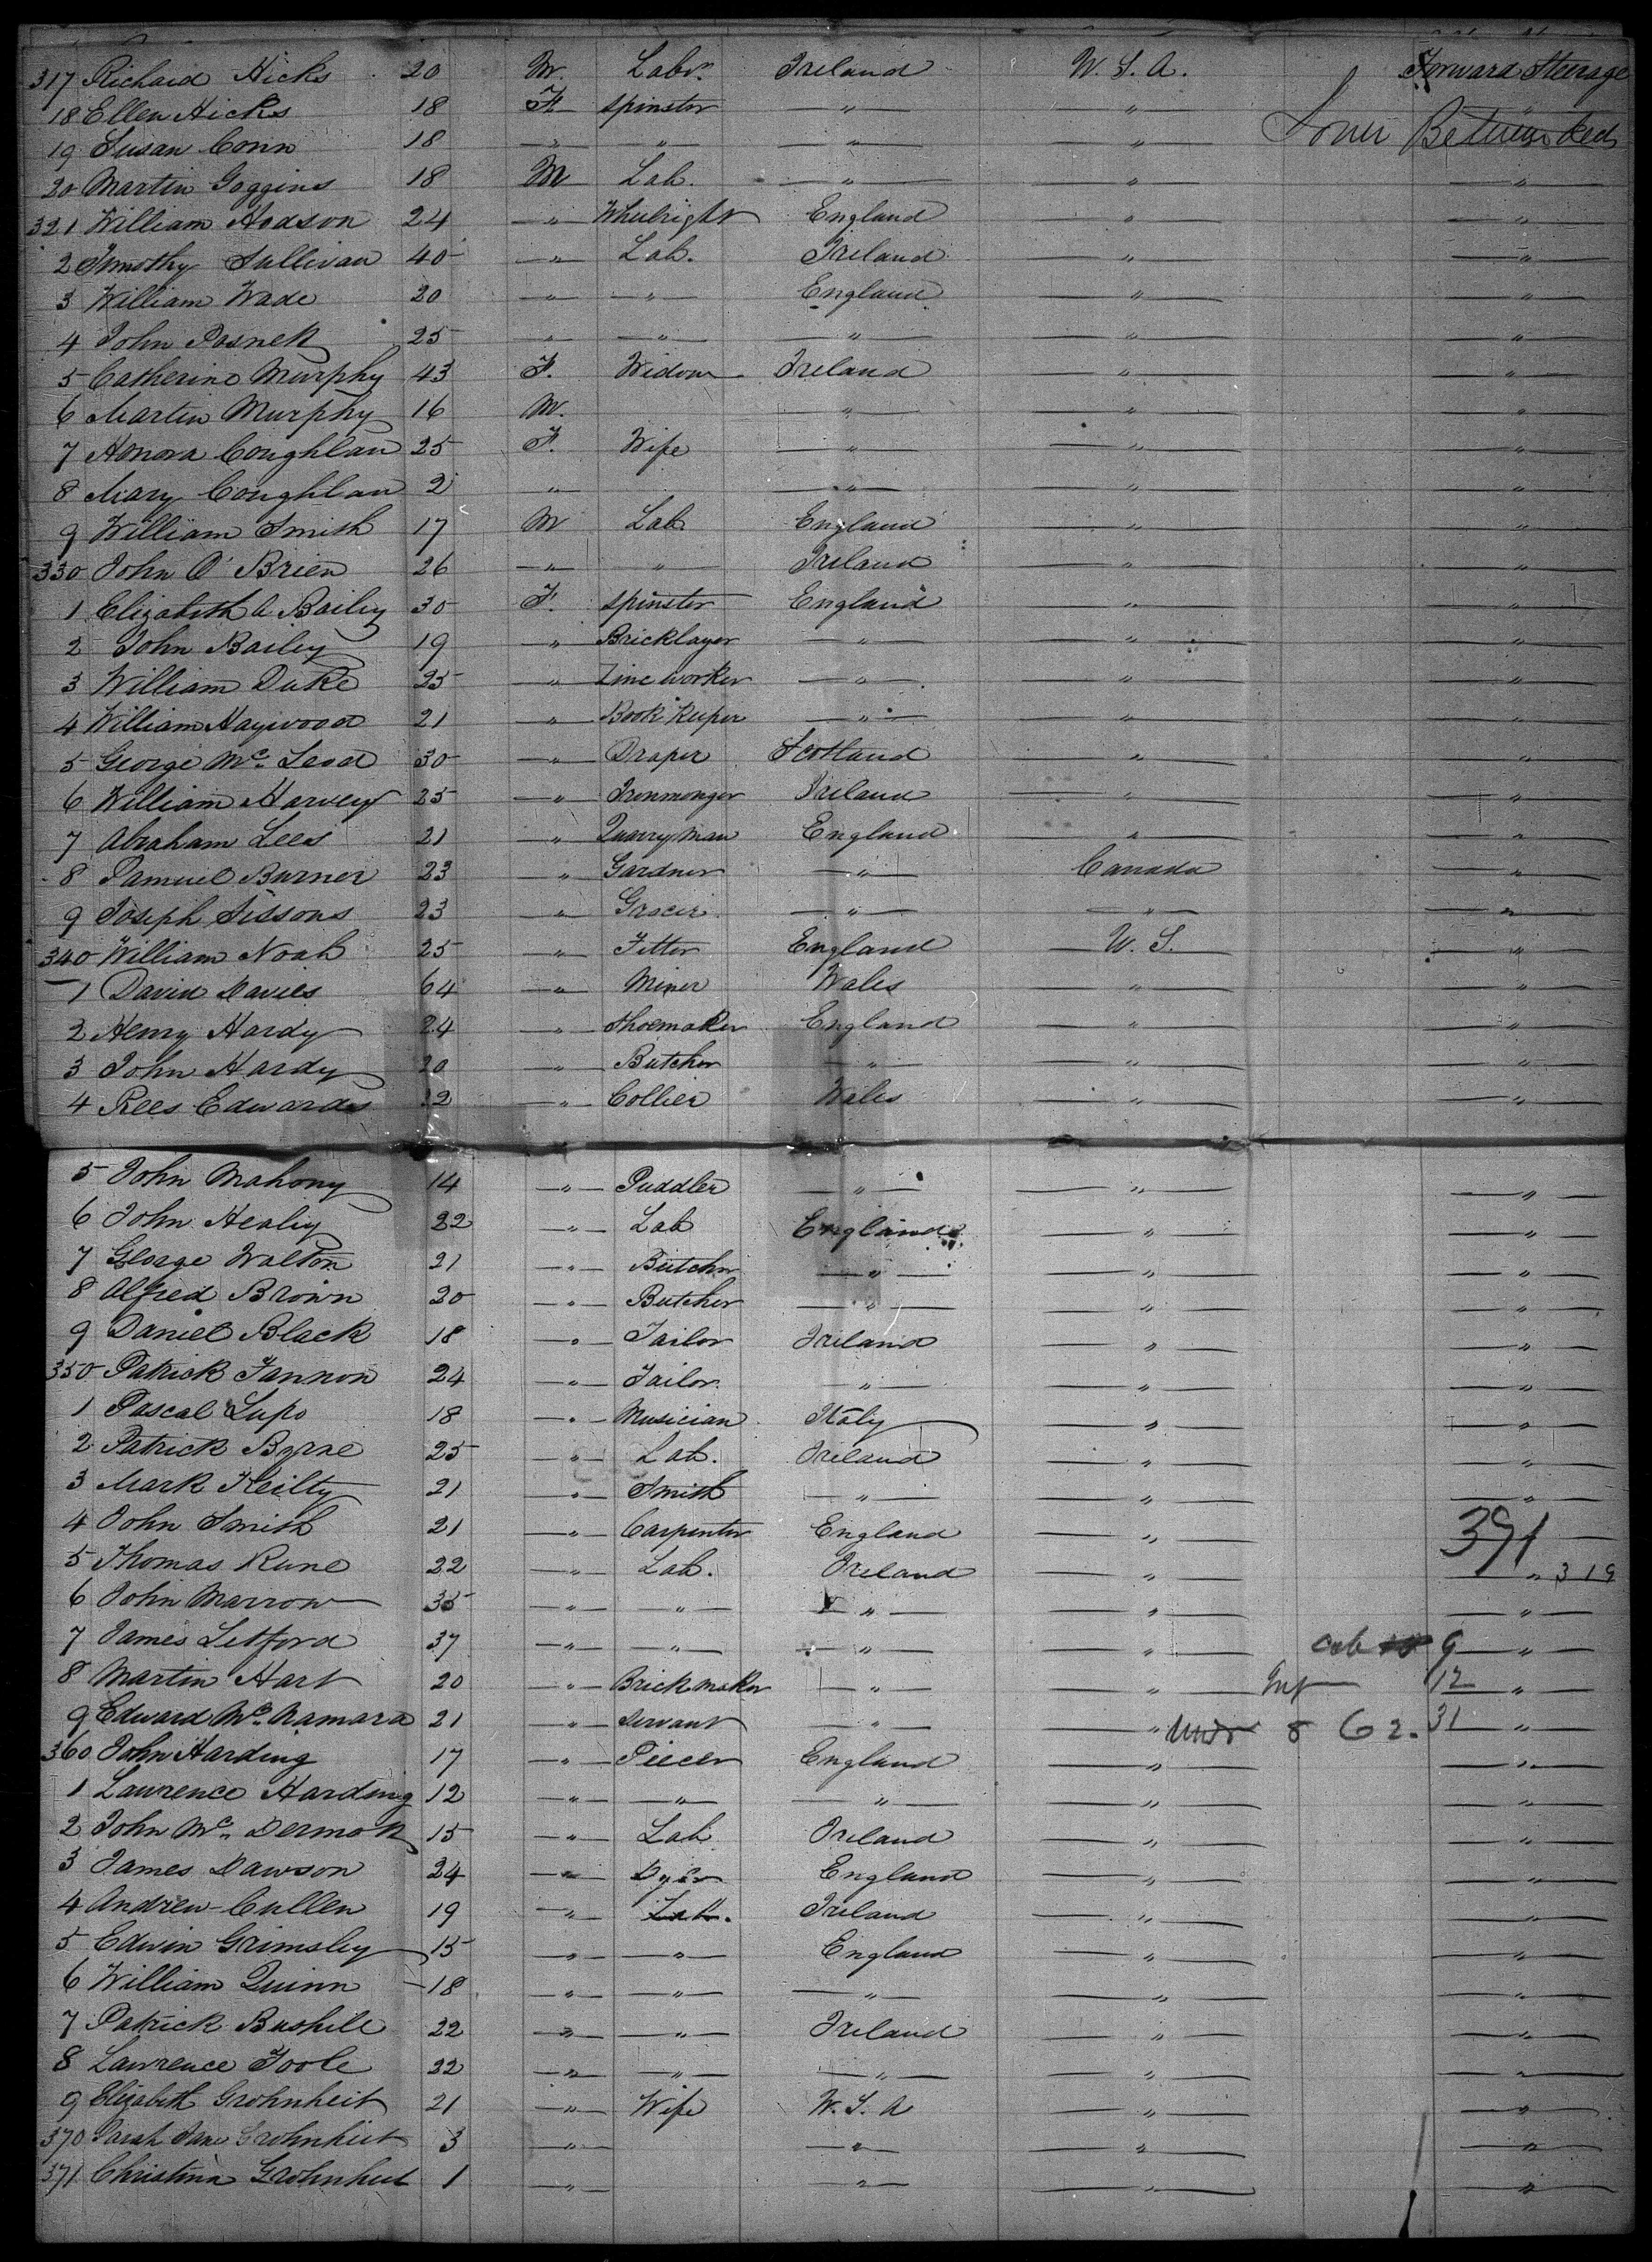 317 Richard Hicks 20 M. Labr. Ireland U. S. A. Forward Steerage
18 Ellen Hicks 18 F. spinster " " "
19 Susan Conn 18 " " " " Lower Between Decks
20 Martin Goggins 18 M Lab. " " "
321 William Hodson 24 " Wheelright England " "
2 Timothy Sullivan 40 " Lab. Ireland " "
3 William Wade 20 " " England " "
4 John Posnek 25 " " " " "
5 Catherine Murphy 43 F. Widow Ireland " "
6 Martin Murphy 16 M. " " "
7 Honora Coughlan 25 F. Wife " " "
8 Mary Coughlan 2 " " " "
9 William Smith 17 M Lab England " "
330 John O'Brien 26 " " Ireland " "
1 Elizabeth A Bailey 30 F. spinster England " "
2 John Bailey 19 " Bricklayer " " "
3 William Duke 25 " Zinc worker " " "
4 William Haywood 21 " Book Keeper " " "
5 George Mc Leod 30 " Draper Scotland " "
6 William Harvey 25 " Ironmonger Ireland " "
7 Abraham Lees 21 " Quarryman England " "
8 Samuel Burner 23 " Gardner " Canada "
9 Joseph Sissons 23 " Grocer " " "
340 William Noah 25 " Fitter England U. S. "
1 David Davies 64 " Miner Wales " "
2 Henry Hardy 24 " Shoemaker England " "
3 John Hardy 20 " Butcher " " "
4 Rees Edwards 32 " Collier Wales " "
5 John Mahony 14 " Puddler " " "
6 John Healey 22 " Lab England " "
7 George Walton 21 " Butcher " " "
8 Alfred Brown 20 " Butcher " " "
9 Daniel Black 18 " Tailor Ireland " "
350 Patrick Fannon 24 " Tailor. " " "
1 Pascal Lupo 18 " Musician Italy " "
2 Patrick Byrne 25 " Lab. Ireland " "
3 Mark Heilty 21 " Smith " " "
4 John Smith 21 " Carpenter England " 391
5 Thomas Rune 22 " Lab. Ireland " " 319
6 John Marrow 35 " " " " "
7 James Letford 37 " " " " cab 9 "
8 Martin Hart 20 " Brickmaker " " Inf 12 "
9 Edward Mc Namara 21 " Servant " " undr 8 62. 31 "
360 John Harding 17 " Piecer England " "
1 Lawrence Harding 12 " " " " "
2 John Mc Dermott 15 " Lab Ireland " "
3 James Dawson 24 " Dyer England " "
4 Andrew Cullen 19 " Lab. Ireland " "
5 Edwin Grimsley 15 " " England " "
6 William Quinn 18 " " " " "
7 Patrick Bushell 22 " " Ireland " "
8 Lawrence Toole 22 " " " " "
9 Elizabeth Grohnheit 21 " Wife U. S. A " "
370 Sarah Jane Grohnheit 3 " " " "
371 Christina Grohnheit 1 " " " "